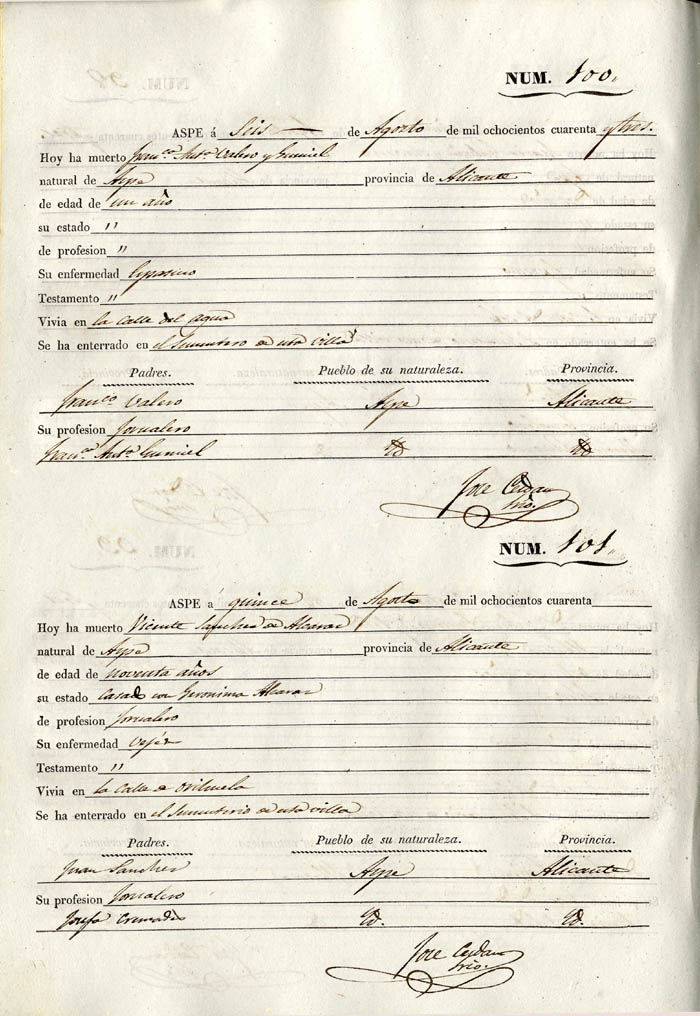 NUM. 100.
ASPE á Seis de Agosto de mil ochocientos cuarenta y tres.
Hoy ha muerto Franco. Anto. Valero y Gumiel
natural de Aspe provincia de Alicante
de edad de un año
su estado "
de profesion "
Su enfermedad
Testamento "
Vivia en la calle del agua
Se ha enterrado en el sementerio de esta villa
Padres. Pueblo de su naturaleza. Provincia.
Franco Valero Aspe Alicante
Su profesion Jornalero
Franca. Anta. Gumiel Yd Yd
Jose
srio.
NUM. 101.
ASPE á quince de Agosto de mil ochocientos cuarenta
Hoy ha muerto Vicente Sanchez de Alcaraz
natural de Aspe provincia de Alicante
de edad de noventa años
su estado Casado con Geronima Alcaraz
de profesion Jornalero
Su enfermedad Vejéz
Testamento "
Vivia en la calle de Orihuela
Se ha enterrado en el sementerio de esta villa
Padres. Pueblo de su naturaleza. Provincia.
Juan Sanchez Aspe Alicante
Su profesion Jornalero
Josefa Cremades Yd. Yd.
Jose
srio.